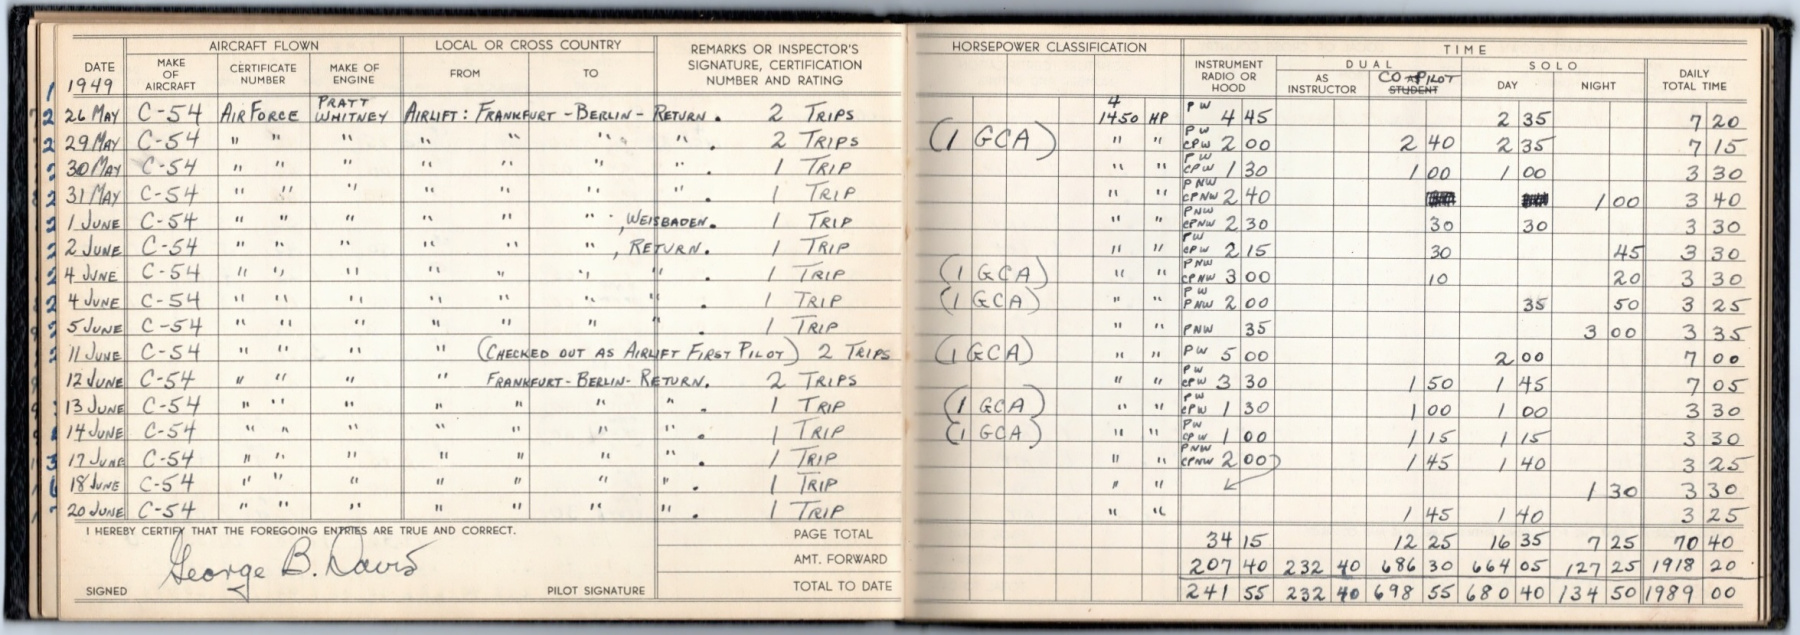 AIRCRAFT FLOWN LOCAL OR CROSS COUNTRY REMARKS OR INSPECTOR'S SIGNATURE, CERTIFICATION NUMBER AND RATING HORSEPOWER CLASSIFICATION TIME
DATE 1949 MAKE OF AIRCRAFT CERTIFICATE NUMBER MAKE OF ENGINE FROM TO INSTRUMENT RADIO OR HOOD DUAL SOLO DAILY TOTAL TIME
AS INSTRUCTOR CO PILOT STUDENT DAY NIGHT
26 MAY C-54 AIR FORCE PRATT WHITNEY AIRLIFT: FRANKFURT - BERLIN - RETURN. 2 TRIPS 4 1450 HP PW 4 45 2 35 7 20
29 MAY C-54 " " " " " " " . 2 TRIPS (1 GCA) " " PW CPW 2 00 2 40 2 35 7 15
30 MAY C-54 " " " " " " " . 1 TRIP " " PW CPW 1 30 1 00 1 00 3 30
31 MAY C-54 " " " " " " " . 1 TRIP " " PNW CPNW 2 40 1 00 3 40
1 JUNE C-54 " " " " " " , WEISBADEN. 1 TRIP " " PNW CPNW 2 30 30 30 3 30
2 JUNE C-54 " " " " " " , RETURN. 1 TRIP " " PW CPW 2 15 30 45 3 30
4 JUNE C-54 " " " " " " " . 1 TRIP (1 GCA) " " PNW CPNW 3 00 10 20 3 30
4 JUNE C-54 " " " " " " " . 1 TRIP (1 GCA) " " PW PNW 2 00 35 50 3 25
5 JUNE C-54 " " " " " " " . 1 TRIP " " PNW 35 3 00 3 35
11 JUNE C-54 " " " " (CHECKED OUT AS AIRLIFT FIRST PILOT) 2 TRIPS (1 GCA) " " PW 5 00 2 00 7 00
12 JUNE C-54 " " " " FRANKFURT - BERLIN - RETURN. 2 TRIPS " " PW CPW 3 30 1 50 1 45 7 05
13 JUNE C-54 " " " " " " " . 1 TRIP (1 GCA) " " PW CPW 1 30 1 00 1 00 3 30
14 JUNE C-54 " " " " " " " . 1 TRIP (1 GCA) " " PW CPW 1 00 1 15 1 15 3 30
17 JUNE C-54 " " " " " " " . 1 TRIP " " PNW CPNW 2 00 1 45 1 40 3 25
18 JUNE C-54 " " " " " " " . 1 TRIP " " 1 30 3 30
20 JUNE C-54 " " " " " " " . 1 TRIP " " 1 45 1 40 3 25
I HEREBY CERTIFY THAT THE FOREGOING ENTRIES ARE TRUE AND CORRECT.
PAGE TOTAL 34 15 12 25 16 35 7 25 70 40
AMT. FORWARD 207 40 232 40 686 30 664 05 127 25 1918 20
George B. Davis
SIGNED PILOT SIGNATURE TOTAL TO DATE 241 55 232 40 698 55 680 40 134 50 1989 00